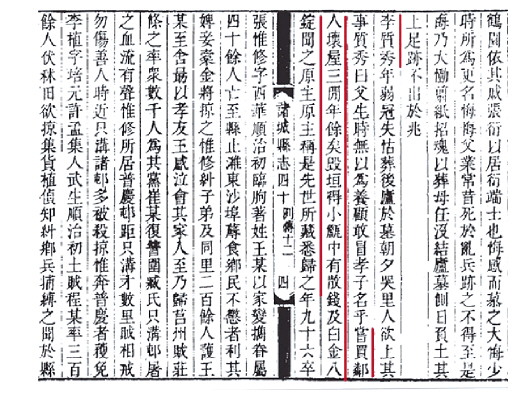 鶴園依其戚張衍以居衍端士也悔感而慕之大悔少
時所為更名悔悔父業常昔死於亂兵跡之不得至是
悔乃大慟剪紙招魂以葬母任沒結廬墓側日負土其
上足跡不出於兆
李質秀年弱冠失怙葬後廬於墓朝夕哭里人欲上其
事質秀曰父生時無以為養顧敢冒孝子名乎嘗買鄰
人壞屋三閒年餘矣毀垣得小甀中有散錢及白金八
錠聞之原主原主稱是先世所藏悉歸之年九十六卒
諸城縣志 四十 列傳十二 四
張惟修字西華順治初臨朐著姓王某以家變攜眷屬
四十餘人亡至縣止濰東沙埠蘇食鄉民不慗者利其
婢妾橐金將掠之惟修糾子弟及同里二百餘人護王
某至舍最以孝友王感泣會其家人至乃歸莒州賊莊
條之率衆數千人為其黨崔某復讐圍臧氏只溝邨屠
之血流有聲惟修所居普慶邨距只溝才數里賊相戒
勿傷善人時近只溝諸邨多被殺掠惟奔普慶者獲免
李植字培元許孟集人武生順治初土賊程某率三百
餘人伏秫田欲掠集貨植偵知糾鄉兵捕縛之聞於縣